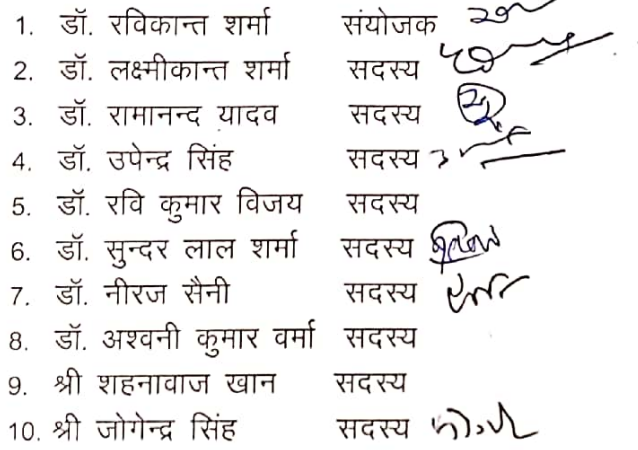 1. डॉ. रविकान्त शर्मा संयोजक
2. डॉ. लक्ष्मीकान्त शर्मा सदस्य
3. डॉ. रामानन्द यादव सदस्य
4. डॉ. उपेन्द्र सिंह सदस्य
5. डॉ. रवि कुमार विजय सदस्य
6. डॉ. सुन्दर लाल शर्मा सदस्य
7. डॉ. नीरज सैनी सदस्य
8. डॉ. अश्वनी कुमार वर्मा सदस्य
9. श्री शहनावाज खान सदस्य
10. श्री जोगेन्द्र सिंह सदस्य